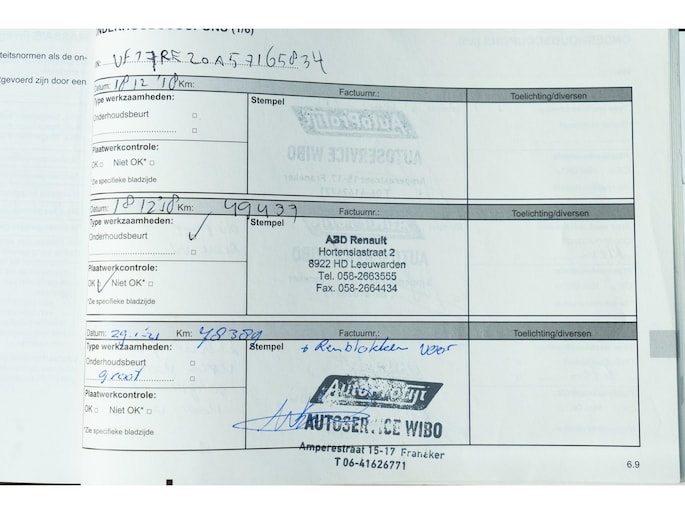 (1/6)
VF17RE20A57165834
teitsnormen als de on-
tgevoerd zijn door een
Datum: 18 12 '18 Km: Factuurnr.: Toelichting/diversen
Type werkzaamheden: Stempel
Onderhoudsbeurt
Plaatwerkcontrole:
OK Niet OK*
*Zie specifieke bladzijde
AutoProfijt
AUTOSERVICE WIBO
Datum: 18 12 '18 Km: 49439 Factuurnr.: Toelichting/diversen
Type werkzaamheden: Stempel
Onderhoudsbeurt
Plaatwerkcontrole:
OK Niet OK*
*Zie specifieke bladzijde
ABD Renault
Hortensiastraat 2
8922 HD Leeuwarden
Tel. 058-2663555
Fax. 058-2664434
Datum: 29-1-21 Km: 78389 Factuurnr.: Toelichting/diversen
Type werkzaamheden: Stempel + Remblokken voor
Onderhoudsbeurt
groot
Plaatwerkcontrole:
OK Niet OK*
*Zie specifieke bladzijde
AutoProfijt
AUTOSERVICE WIBO
Amperestraat 15-17 Franeker
T 06-41626771
6.9